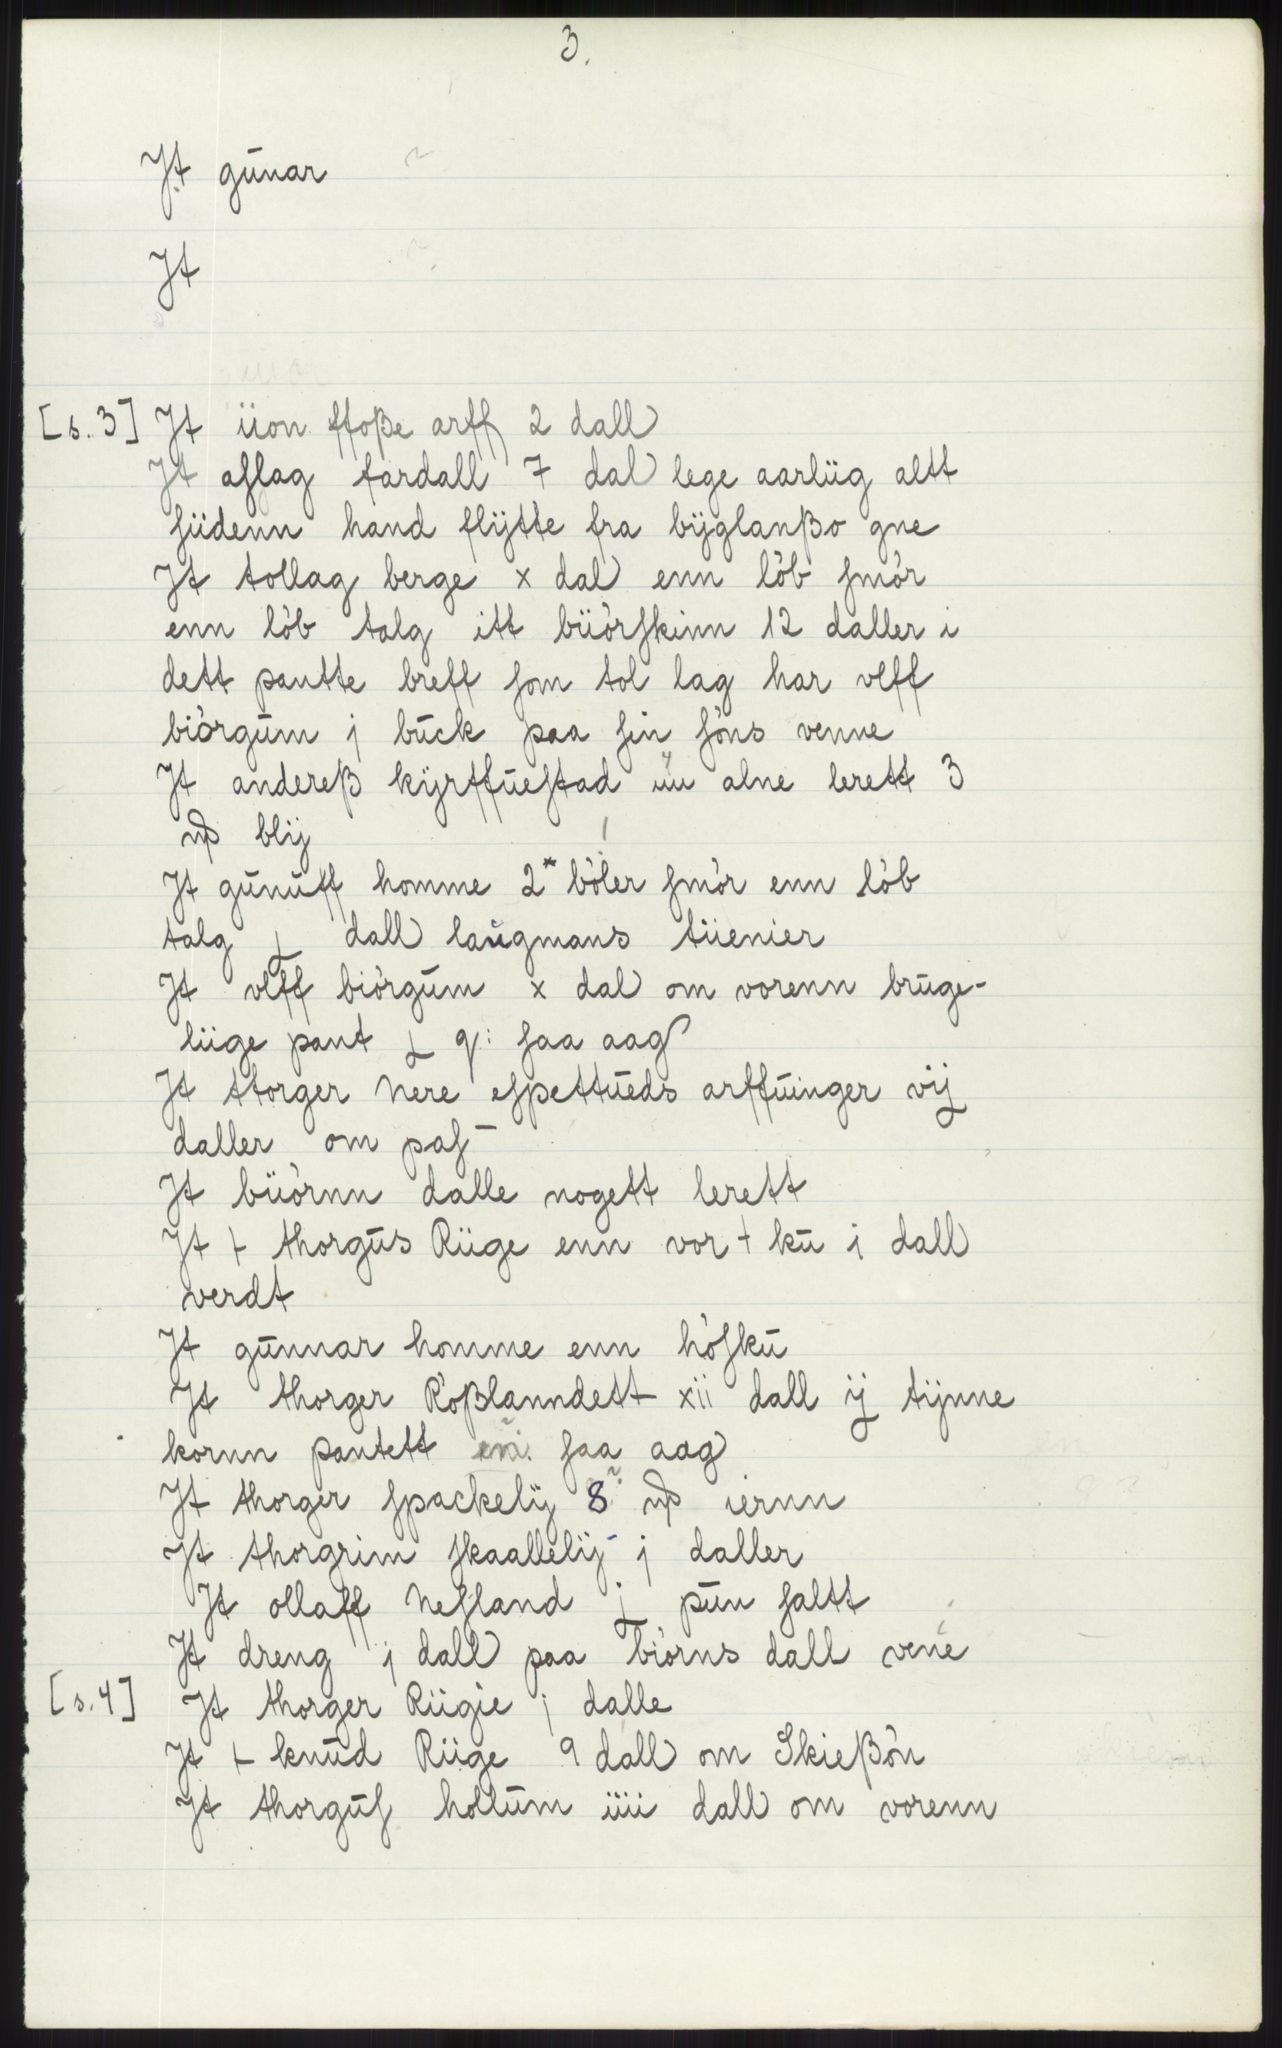 3.
Jt gūnar
Jt
[s. 3] Jt üon ffoße arff 2 dall
Jt aslag fardall 7 dal lege aarlüg altt
südenn hand flÿtte fra bÿglanßo gne
Jt tollag berge x dal enn lòb smòr
enn lòb talg itt büòrskinn 12 daller i
dett pantte breff som tol lag har vlff
biòrgūm j būck paa sin sòns venne
Jt andereß kÿrffūestad üü alne lerett 3
blij
Jt gūnūff homme 2* bòler smòr enn lòb
talg dall laūgmans tüenier
Jt vlff biòrgūm x dal om vorenn brūge-
lüge pant q: saa aag
Jt storger Nere espettūeds arffūinger vij
daller om pas-
Jt büòrnn dalle nogett lerett
Jt + thorgūs Rüge enn vor + kū j dall
verdt
Jt gūnnar homme enn hòskū
Jt thorger Ròßlanndett xii dall ij tÿnne
kornn pantett saa aag
Jt thorger spackelÿ 8 iernn
Jt thorgrim skaallelÿ j daller
Jt ollaff Nesland pūn saltt
Jt dreng j dall paa biòrns dall vene
[s. 4] Jt thorger Rügie j dalle
Jt + knūd Rüge 9 dall om Skießòn
Jt thorgūs hollūm iiii dall om vorenn